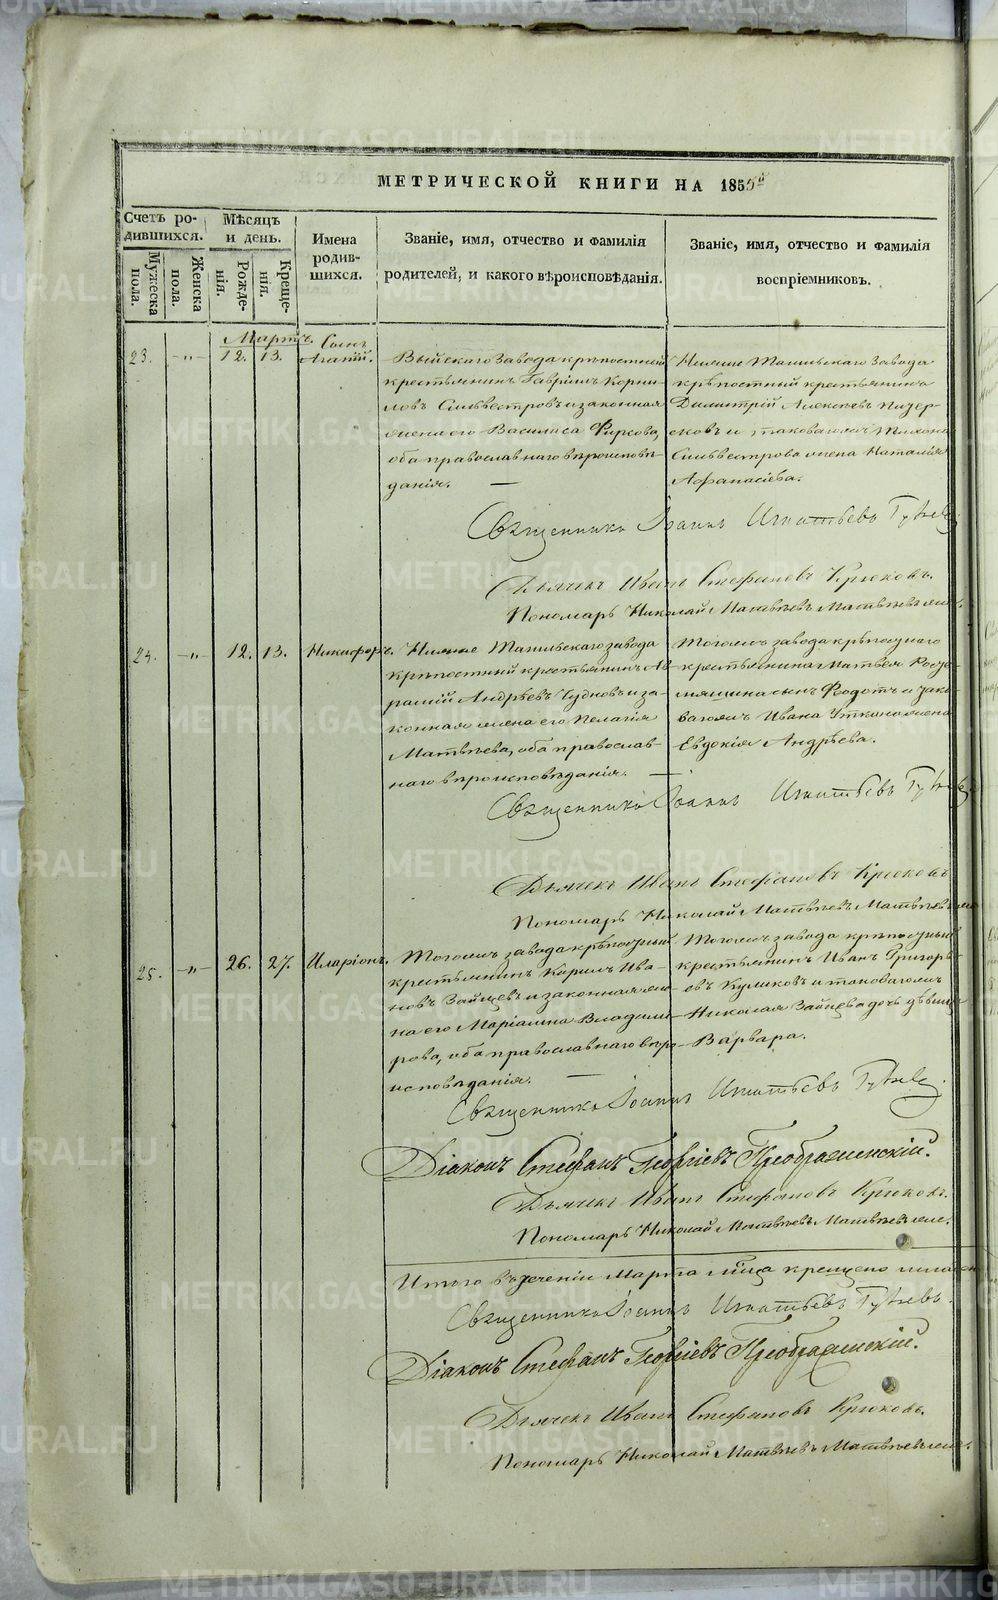 МЕТРИЧЕСКОЙ КНИГИ НА 1855й
Счетъ ро-
дившихся.
Мужеска
пола.
Женска
пола.
Мѣсяцъ
и день.
Рожде-
нія.
Креще-
нія.
Имена
родив-
шихся.
Званіе, имя, отчество и фамилія
родителей, и какого вѣроисповѣданія.
Званіе, имя, отчество и фамилія
воспріемниковъ.
Мартъ.
23. -„- 12. 13.
Сынъ
Агапій.
Выйскаго Завода крѣпостный
крестьянинъ Гавріилъ Корни-
ловъ Сильвестровъ и законная
жена его Василиса Фирсова,
оба православнаго вѣроисповѣ-
данія. —
Нижне Тагильскаго Завода
крѣпостный крестьянинъ
Димитрій Алексѣевъ
и таковагожъ Тихона
Сильвестрова жена Наталія
Афанасіева.
Священникъ Іоаннъ Игнатьевъ
Дьячекъ Иванъ Стефановъ Крюковъ.
Пономарь Николай Матвѣевъ
24. -„- 12. 13. Никифоръ.
Нижне Тагильскаго завода
крѣпостный крестьянинъ
Андрѣевъ Чудновъ и за-
конная жена его Пелагія
Матвѣева, оба православ-
наго вѣроисповѣданія. —
Тогожъ завода крѣпостнаго
крестьянина Матвѣя
сынъ Ѳеодотъ и тако-
вагожъ Ивана Уткина жена
Евдокія Андрѣева.
Священникъ Іоаннъ Игнатьевъ
Дьячекъ Иванъ Стефановъ Крюковъ
Пономарь Николай Матвѣевъ
25. -„- 26. 27. Иларіонъ.
Тогожъ завода крѣпостный
крестьянинъ Кирилъ Ива-
новъ Зайцевъ и законная же-
на его Маріамна Владими-
рова, оба православнаго вѣро-
исповѣданія. —
Тогожъ завода крѣпостный
крестьянинъ Иванъ Григорь-
евъ Куликовъ и таковагожъ
Николая Зайцева дочь дѣвица
Варвара.
Священникъ Іоаннъ Игнатьевъ
Діаконъ Стефанъ Георгіевъ Преображенскій.
Дьячекъ Иванъ Стефановъ Крюковъ.
Пономарь Николай Матвѣевъ
Итого въ теченіи Марта м͠ца крещено
Священникъ Іоаннъ Игнатьевъ
Діаконъ Стефанъ Георгіевъ Преображенскій.
Дьячекъ Иванъ Стефановъ Крюковъ.
Пономарь Николай Матвѣевъ
METRIKI.GASO-URAL.RU